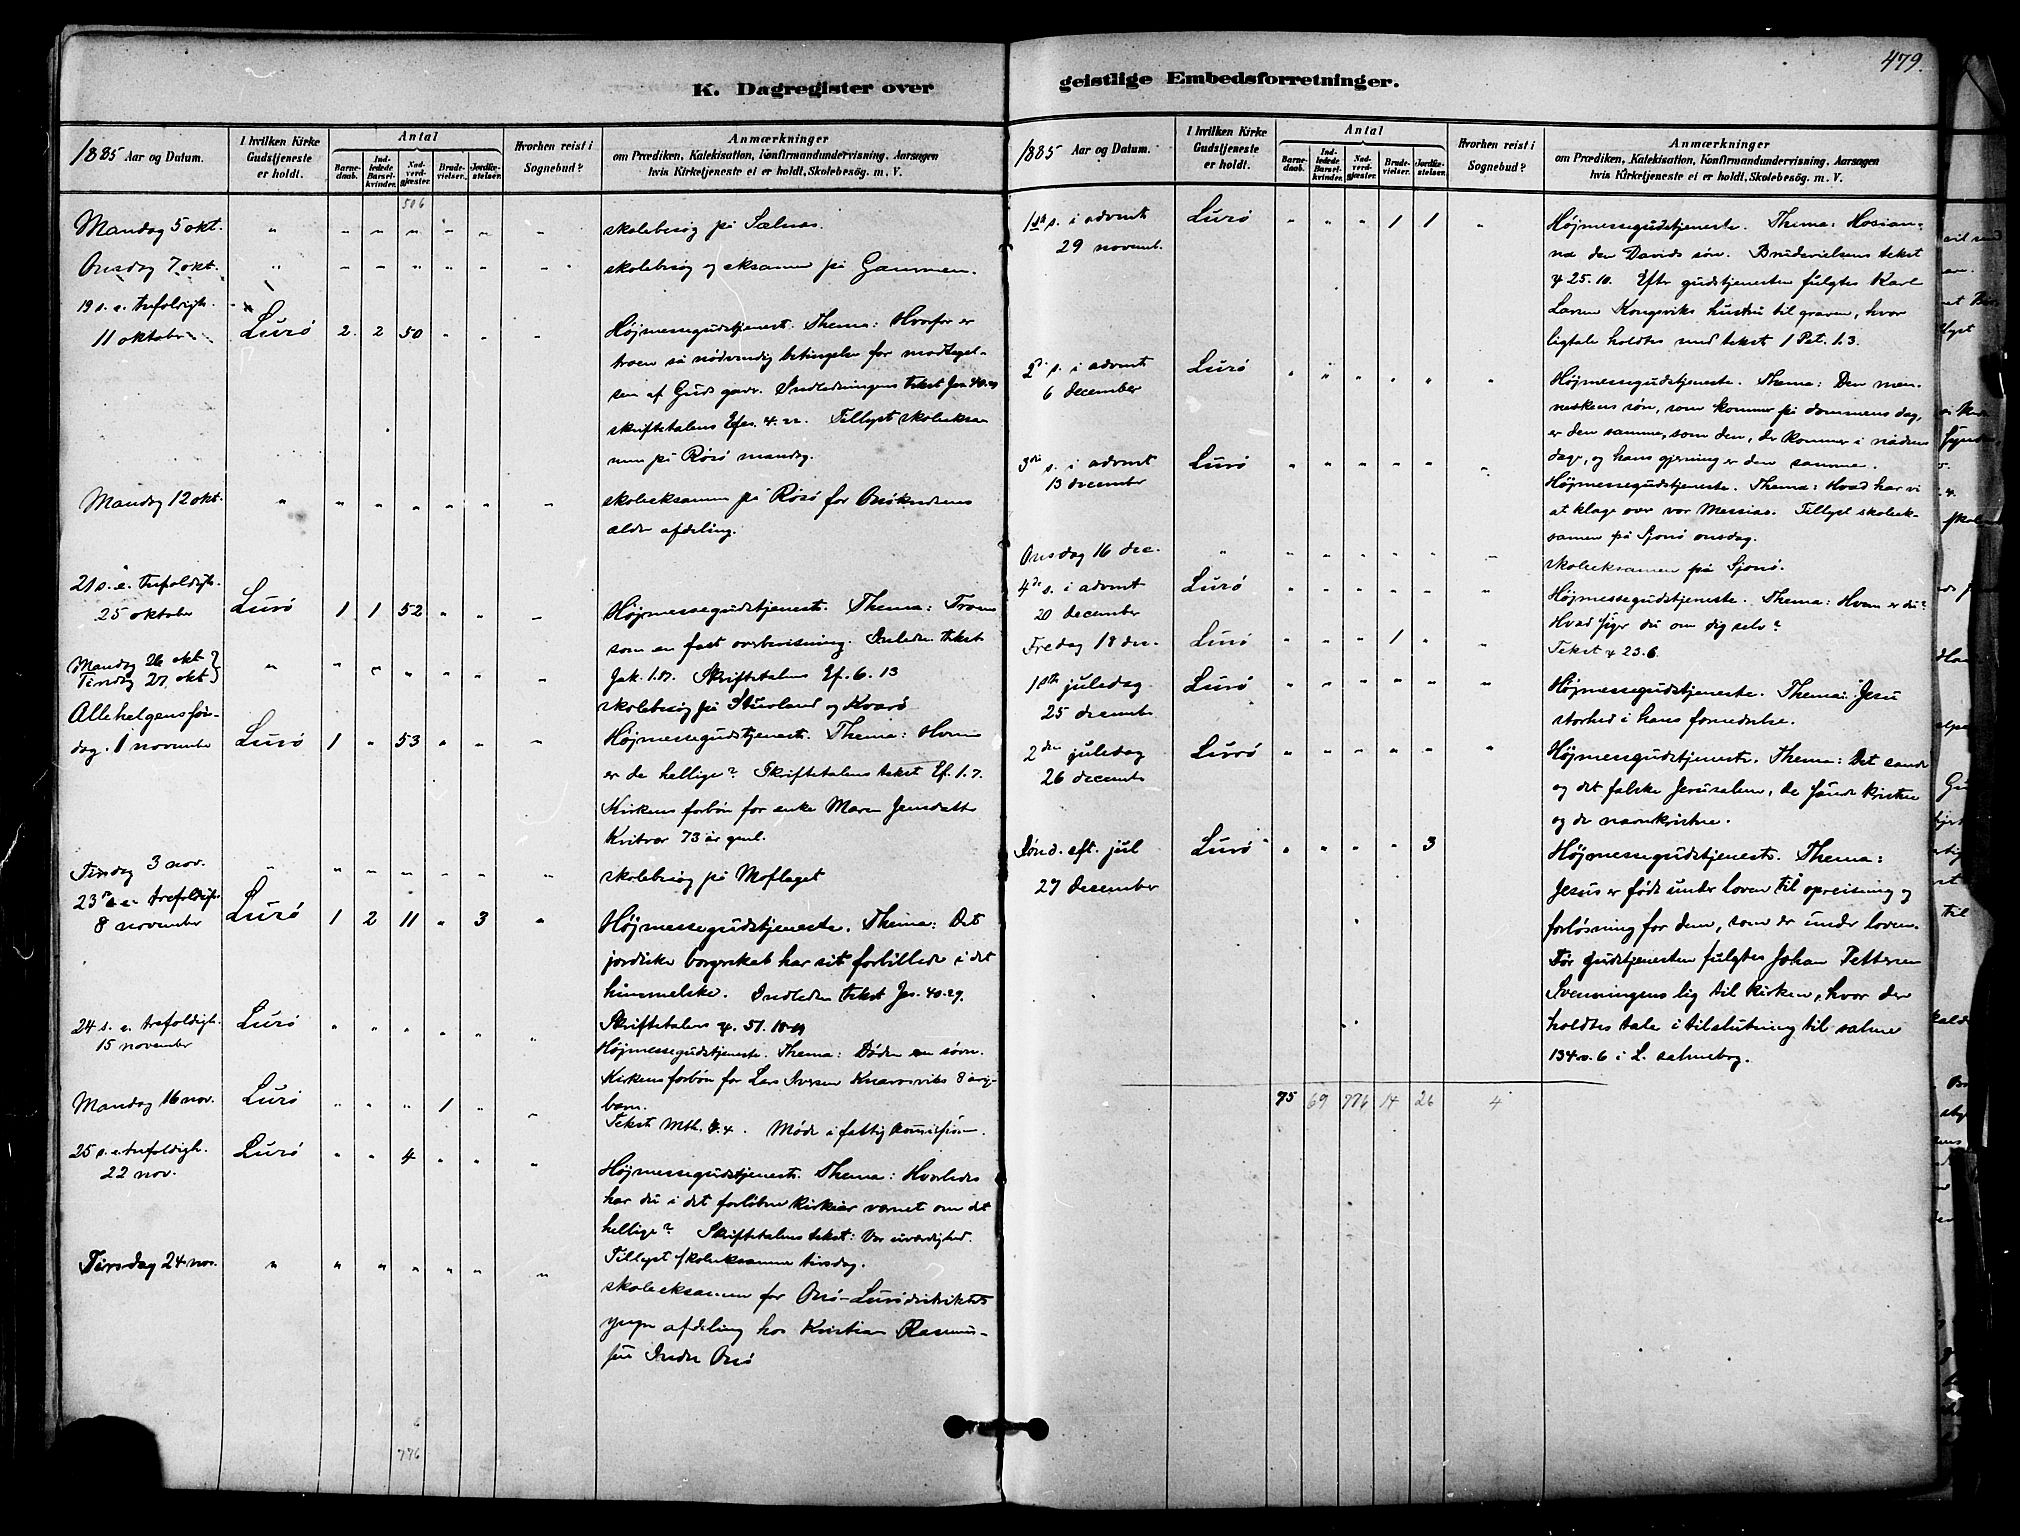 479.
K. Dagregister over
1885 Aar og Datum.
I hvilken Kirke Gudstjeneste er holdt.
Antal
Barnedaab.
Indledede Barselkvinder.
Nadverdgjæster.
Brudevielser.
Jordfæstelser.
Hvorhen reist i Sognebud?
Anmærkninger
om Prædiken, Katekisation, Konfirmandundervisning, Aarsagen
hvis Kirketjeneste ei er holdt, Skolebesög. m. V.
506
Mandag 5 okt. " " " " " " " skolebesøg på Selnes.
Onsdag 7 okt. " " " " " " " skolebesøg og eksamen på Gammen.
19 s. e. trefoldigh.
11 oktober Lurö 2 2 50 " " " Højmessegudstjenest. Thema: Hvorfor er
troen så nødvendig betingelse for modtagel-
sen af Guds gave. Indledningens tekst Jes. 40.29
skriftetalens Efes. 4.22. Tillyst skoleeksa
men på Røsö mandag.
Mandag 12 okt. " " " " " " " skoleeksamen på Røsö for Onökredsens
ældre afdeling.
21 s. e. trefoldigh.
25 oktober Lurö 1 1 52 " " " Højmessegudstjenest. Thema: Troen
som en fast overbevisning. Indleden tekst
Jak. 1.17. Skriftetalens Ef. 6.13
Mandag 26 okt }
Tirsdag 27 okt } " " " " " " " skolebesøg på Stuvland og Kvarö
Allehelgenssøn-
dag. 1 november Lurö 1 " 53 " " " Højmessegudstjenest. Thema: Hvem
er de hellige? Skriftetalens tekst Ef. 1.7.
Kirkens forbön for enke Maren Jensdatter
Kvitvær 73 år gml.
Tirsdag 3 nov. " " " " " " " skolebesøg på Moflaget
23 s. e. trefoldigh.
8 november Lurö 1 2 11 " 3 " Højmessegudstjeneste. Thema: Det
jordiske borgerskab har sit forbillede i det
himmelske. Indleden tekst Jes. 40.29.
Skriftetalens ψ. 51. 18-19
24 s. e. trefoldigh.
15 november Lurö " " " " " " Højmessegudstjeneste. Thema: Døden en søvn.
Kirkens forbön for Lars Iversen Knarrsviks 8 årig
barn.
Mandag 16 nov. Lurö " " " 1 " " Tekst Mth. 4.4. Møde i fattigkommissionen.
25 s. e. trefoldigh.
22 nov. Lurö " " 4 " " " Højmessegudstjenest. Thema: Hvorledes
har du i det forløbne kirkeår værnet om det
hellige? Skriftetalens tekst: Vor uværdighed.
Tillyst skoleeksamen tirsdag.
Tirsdag 24 nov. " " " " " " " skoleeksamen for Onö-Lurödistriktets
yngre afdeling hos Kristian Rasmus-
sen Indre Onö
6
776
geistlige Embedsforretninger.
1885 Aar og Datum.
I hvilken Kirke Gudstjeneste er holdt.
Antal
Barnedaab.
Indledede Barselkvinder.
Nadverdgjæster.
Brudevielser.
Jordfæstelser.
Hvorhen reist i Sognebud?
Anmærkninger
om Prædiken, Katekisation, Konfirmandundervisning, Aarsagen
hvis Kirketjeneste ei er holdt, Skolebesög. m. V.
1ste s. i advent
29 novemb. Lurö " " " 1 1 " Højmessegudstjeneste. Thema: Hosian-
na den Davids søn. Brudevielsens tekst
ψ 25.10. Efter gudstjenesten fulgtes Karl
Larsen Kongsviks hustru til graven, hvor
ligtale holdtes med tekst 1 Pet. 1.3.
2d s. i advent
6 december Lurö " " " " " " Højmessegudstjeneste. Thema: Den men-
neskens søn, som kommer på dommens dag,
er den samme, som den, der kommer i nådens
dage, og hans gjerning er den samme.
3die s. i advent
13 december Lurö " " " " " " Højmessegudstjeneste. Thema: Hvad har vi
at klage over vor Messias. Tillyst skoleek-
samen på Sjonö onsdag.
Onsdag 16 dec. " " " " " " " skoleeksamen på Sjonö.
4de s. i advent
20 december Lurö " " " " " " Højmessegudstjeneste. Thema: Hvem er du?
Hvad siger du om dig selv?
Fredag 18 dec. Lurö " " " 1 " " Tekst ψ 23.6.
1ste juledag
25 decemb. Lurö " " " " " " Højmessegudstjeneste. Thema: Jesu
storhed i hans fornedrelse.
2den juledag
26 decemb Lurö " " " " " " Højmessegudstjeneste. Thema: Det sande
og det falske Jerusalem, de sande kristne
og de navnkristne.
Sønd. eft. jul
27 desember Lurö " " " " 3 Højmessegudstjeneste. Thema:
Jesus er født under loven til opreisning og
forløsning for dem, som er under loven.
Før gudstjenesten fulgtes Johan Pettersen
Svenningens lig til kirken, hvor der
holdtes tale i tilslutning til salme
134 v. 6 i L. salmebog.
75 69 776 14 26 4